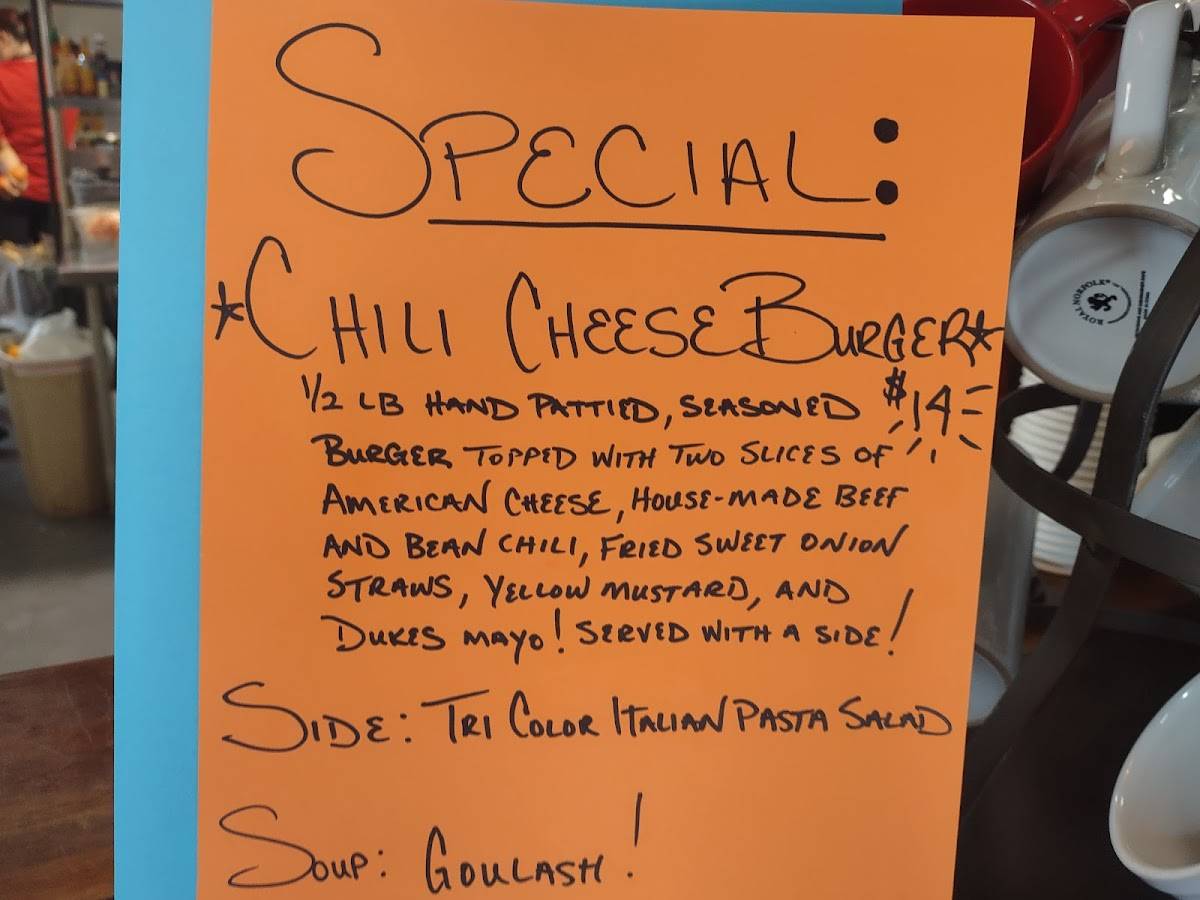 SPECIAL:
*CHILI CHEESEBURGER*
1/2 LB HAND PATTIED, SEASONED $14
BURGER TOPPED WITH TWO SLICES OF
AMERICAN CHEESE, HOUSE-MADE BEEF
AND BEAN CHILI, FRIED SWEET ONION
STRAWS, YELLOW MUSTARD, AND
DUKES MAYO! SERVED WITH A SIDE!
SIDE: TRI COLOR ITALIAN PASTA SALAD
SOUP: GOULASH!
ROYAL NORFOLK